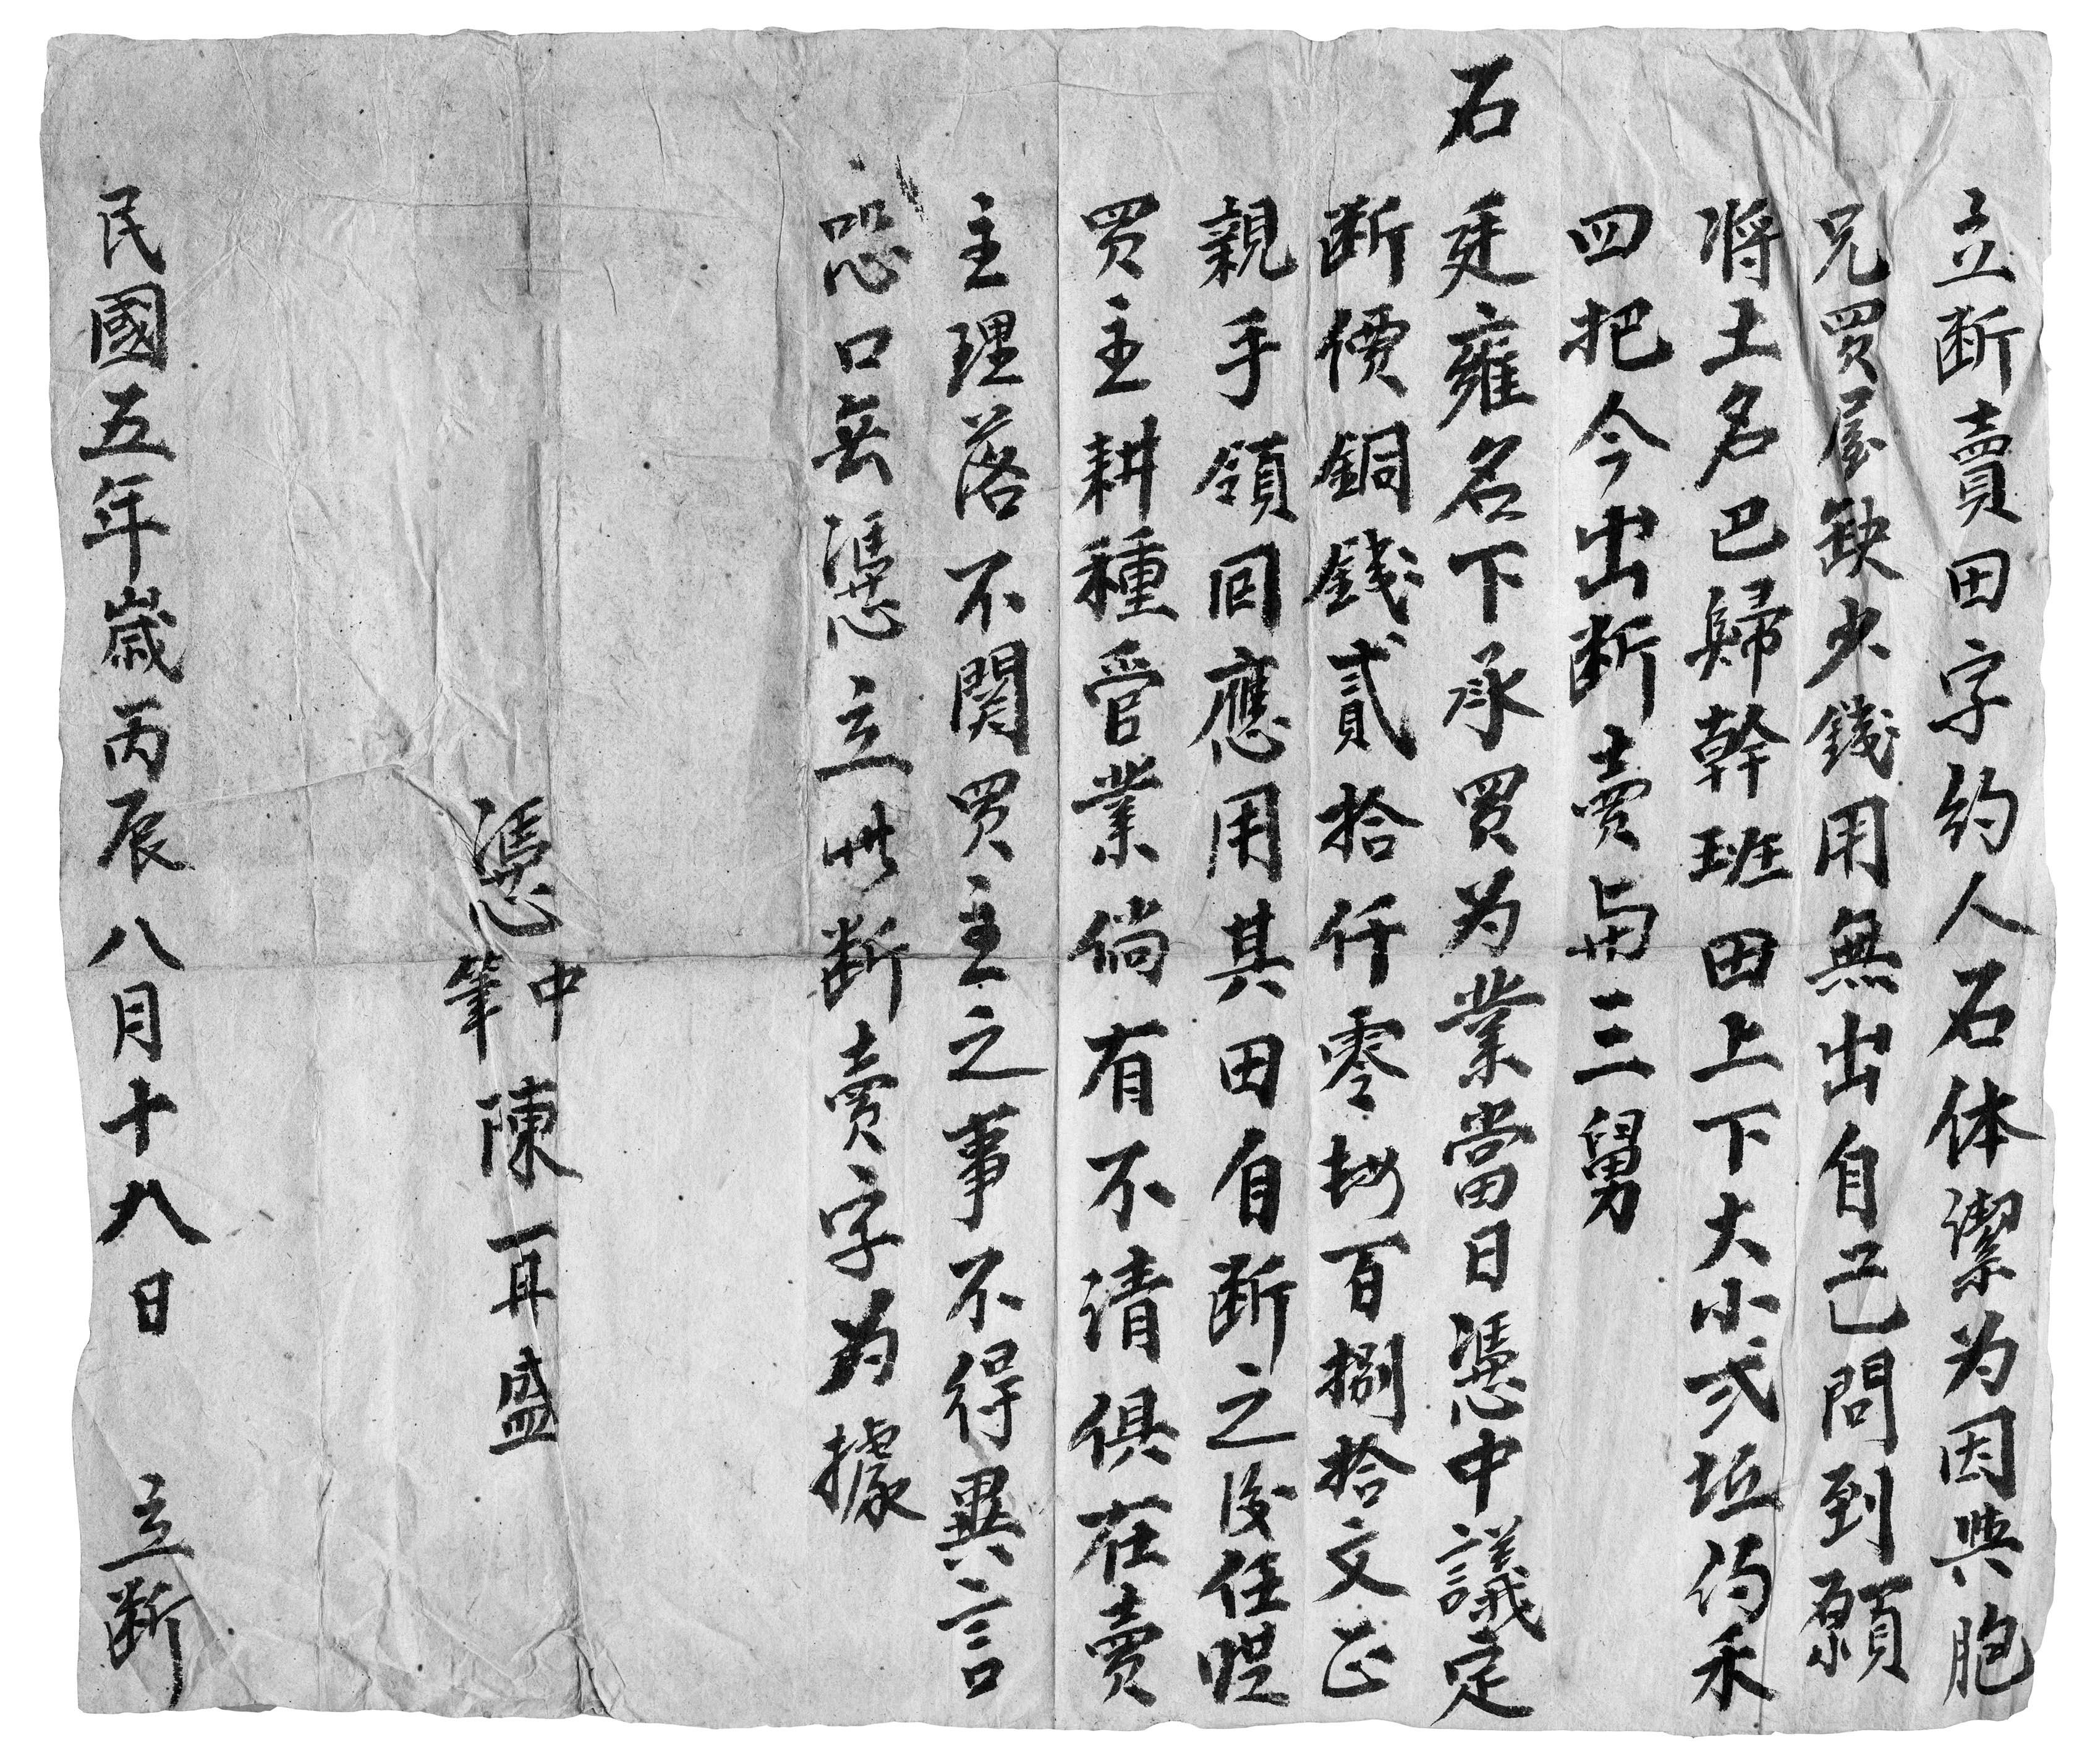 立断賣田字約人石体潔为因與胞
兄買屋缺少錢用無出自己問到願
将土名巴歸幹班田上下大小弍坵約禾
四把今出断賣与三舅
石廷雍名下承買为業當日憑中議定
断價銅錢貳拾仟零柒百捌拾文正
親手領回應用其田自断之後任凭
買主耕種管業倘有不清俱在賣
主理落不関買主之事不得異言
恐口无憑立此断賣字為據
憑中筆陳再盛
民國五年歲丙辰八月十八日 立断